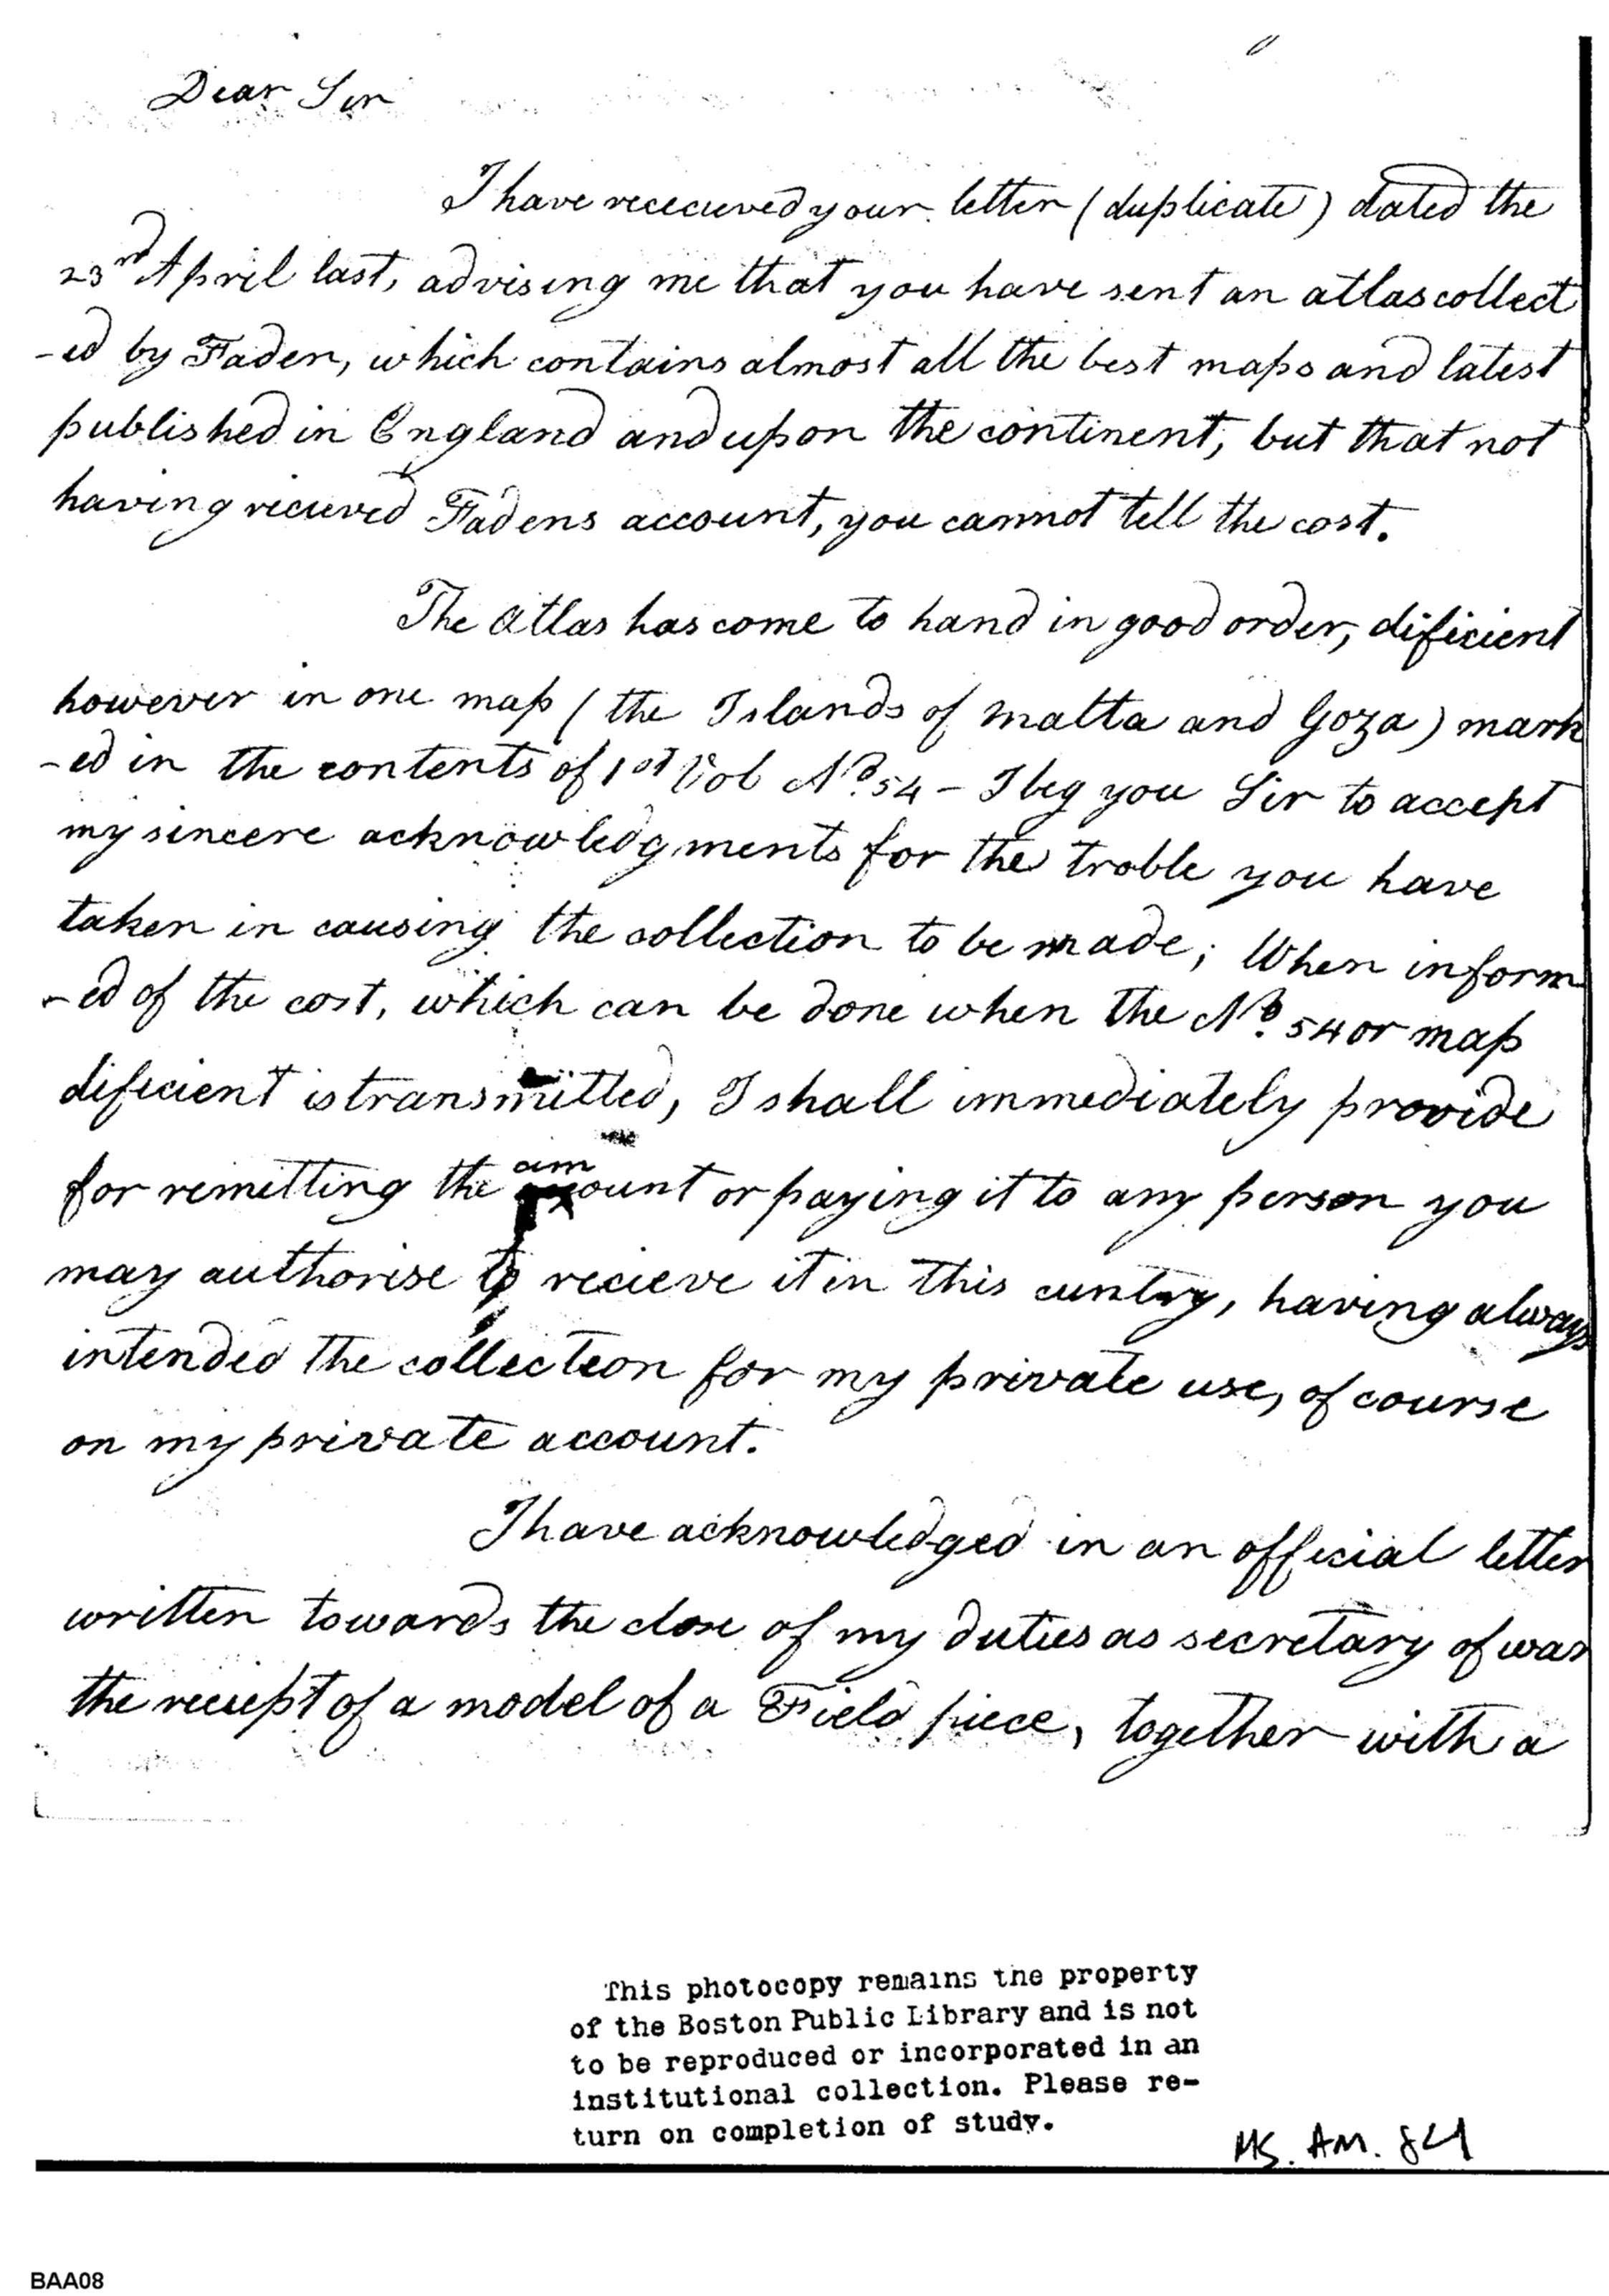 Dear Sir
I have rececieved your letter (duplicate) dated the
23rd April last, advising me that you have sent an atlas collect
-ed by Faden, which contains almost all the best maps and latest
published in England and upon the continent, but that not
having recieved Fadens account, you cannot tell the cost.
The Atlas has come to hand in good order, dificient
however in one map (the Islands of Malta and Goza) mark
-ed in the contents of 1st Vol No. 54 - I beg you Sir to accept
my sincere acknowledgments for the troble you have
taken in causing the collection to be made; When inform
-ed of the cost, which can be done when the No. 54 or map
dificient is transmitted, I shall immediately provide
for remitting the amount or paying it to any person you
may authorise to recieve it in this cuntry, having always
intended the collection for my private use, of course
on my private account.
I have acknowledged in an official letter
written towards the close of my duties as secretary of war
the reciept of a model of a Field piece, together with a
This photocopy remains the property
of the Boston Public Library and is not
to be reproduced or incorporated in an
institutional collection. Please re-
turn on completion of study.
MS. AM. 84
BAA08